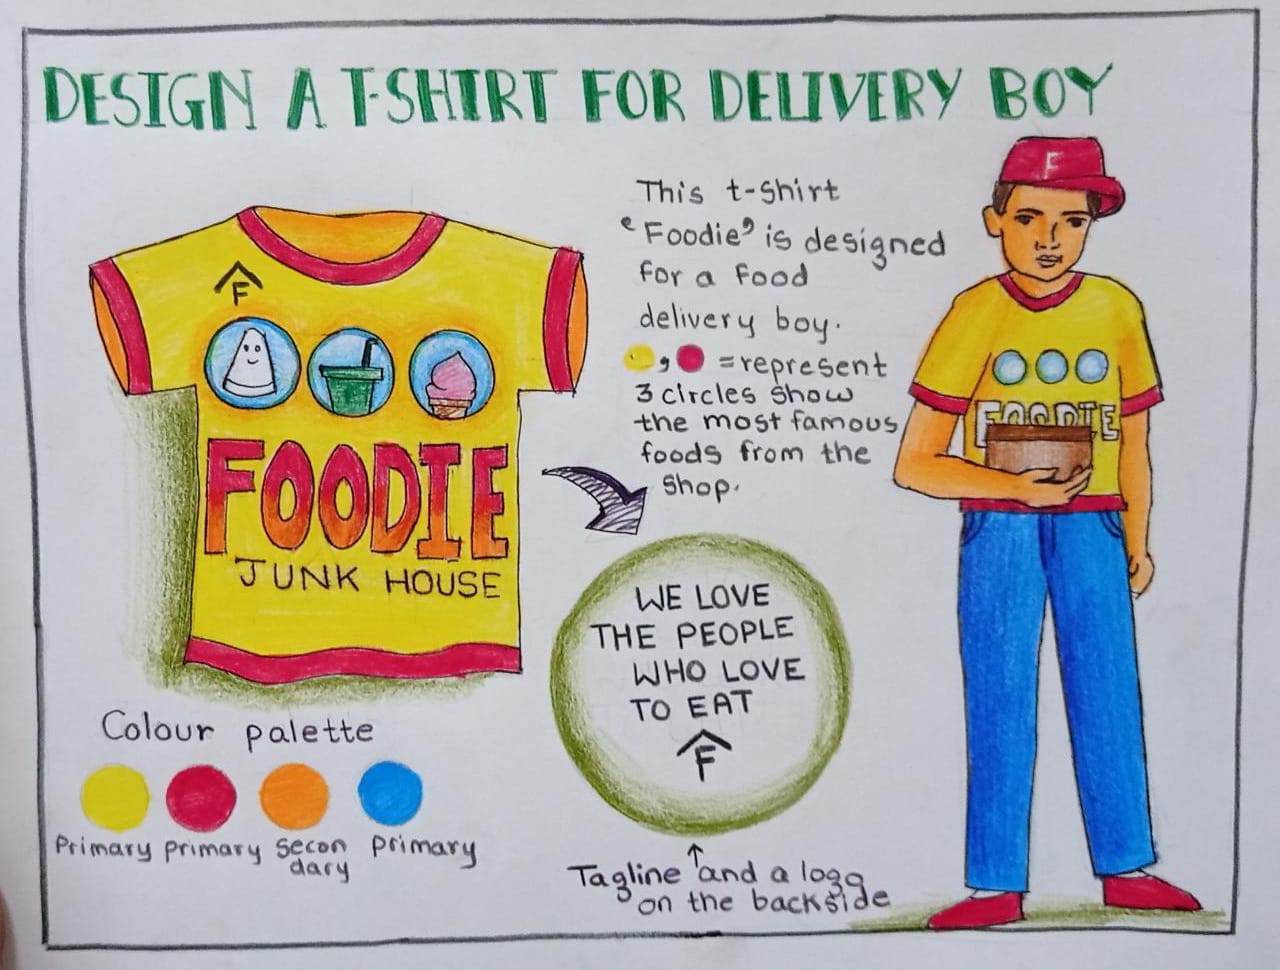 DESIGN A T-SHIRT FOR DELIVERY BOY
F
This t-shirt
‘Foodie’ is designed
for a food
delivery boy.
, = represent
3 circles show
the most famous
foods from the
shop.
F
FOODIE
JUNK HOUSE
FOODIE
WE LOVE
THE PEOPLE
WHO LOVE
TO EAT
F
Colour palette
Primary primary secon primary
dary
Tagline and a logo
on the backside